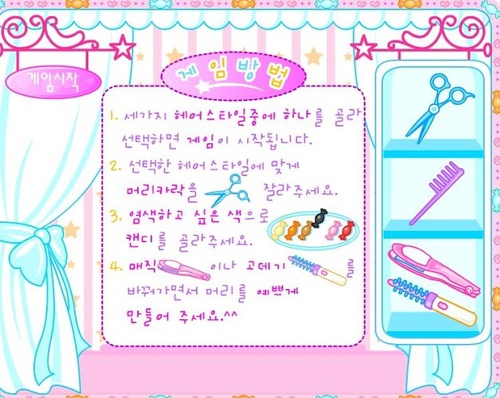 게임방법
게임시작
1. 세가지 헤어스타일중에 하나를 골라
선택하면 게임이 시작됩니다.
2. 선택한 헤어스타일에 맞게
머리카락을 잘라주세요.
3. 염색하고 싶은 색으로
캔디를 골라주세요.
4. 매직 이나 고데기 를
바꿔가면서 머리를 예쁘게
만들어 주세요.^^